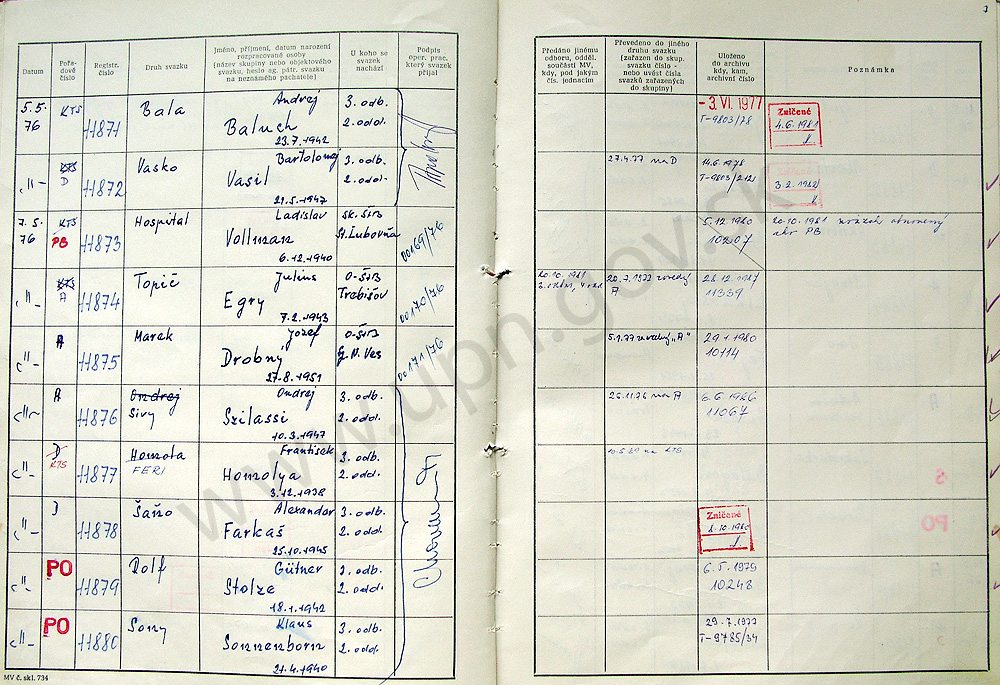 Datum
Pořadové číslo
Registr. číslo
Druh svazku
Jméno, příjmení, datum narození
rozpracované osoby
(název skupiny nebo objektového
svazku, heslo ag. pátr. svazku
na neznámého pachatele)
U koho se
svazek
nachází
Podpis
oper. prac.
který svazek
přijal
Předáno jinému
odboru, odděl.
součásti MV,
kdy, pod jakým
čís. jednacím
Převedeno do jiného
druhu svazku
(zařazen do skup.
svazku číslo -
nebo uvést čísla
svazků zařazených
do skupiny)
Uloženo
do archivu
kdy, kam,
archivní číslo
Poznámka
5.5. 76 KTS 11871 Bala Andrej 3. odb.
Baluch 2. odd.
23.7.1942
- 3. VI. 1977
T-9803/78
Zničené
4.6.1981
D 11872 Vasko Bartolomej 3. odb.
Vasil 2. odd.
21.5.1947
27.4.77 na D
14.6.1978
T-9803/212
3.2.1982
7.5. 76 KTS PB 11873 Hospital Ladislav
Vollman St. Ľubovňa
6.12.1940
00169/76
5.12.1980
10207
20.10.1981
PB
A 11874 Topič Julius O-ŠtB
Egry Trebišov
7.2.1943
00170/76
20.10.1981
20.7.1977
A
28.12.1987
11339
A 11875 Marek Jozef O-ŠtB
Drobný Ves
27.8.1951
00171/76
5.1.77 "A"
29.1.1980
10114
A 11876 Ondrej Ondrej 3. odb.
Sivy Szilassi 2. odd.
10.3.1947
26.11.76 na A
6.6.1986
11067
D KTS 11877 Homola František 3. odb.
FERI Homolya 2. odd.
3.12.1938
na KTS
11878 Šaňo Alexander 3. odb.
Farkaš 2. odd.
25.10.1945
Zničené
2.10.1980
PO 11879 Rolf Gütner 3. odb.
Stolze 2. odd.
18.1.1942
6.5.1979
10248
PO 11880 Sony Klaus 3. odb.
Sonnenborn 2. odd.
21.4.1940
29.7.1977
T-9785/34
MV č. skl. 734
www.upn.gov.sk